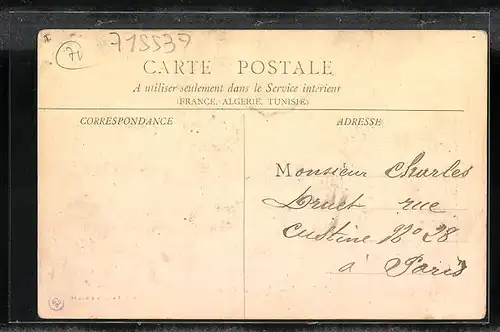 71
715537
CARTE POSTALE
A utiliser seulement dans le Service intérieur
(FRANCE, ALGERIE, TUNISIE)
CORRESPONDANCE
ADRESSE
Monsieur Charles
rue
Custine No 28
à Paris